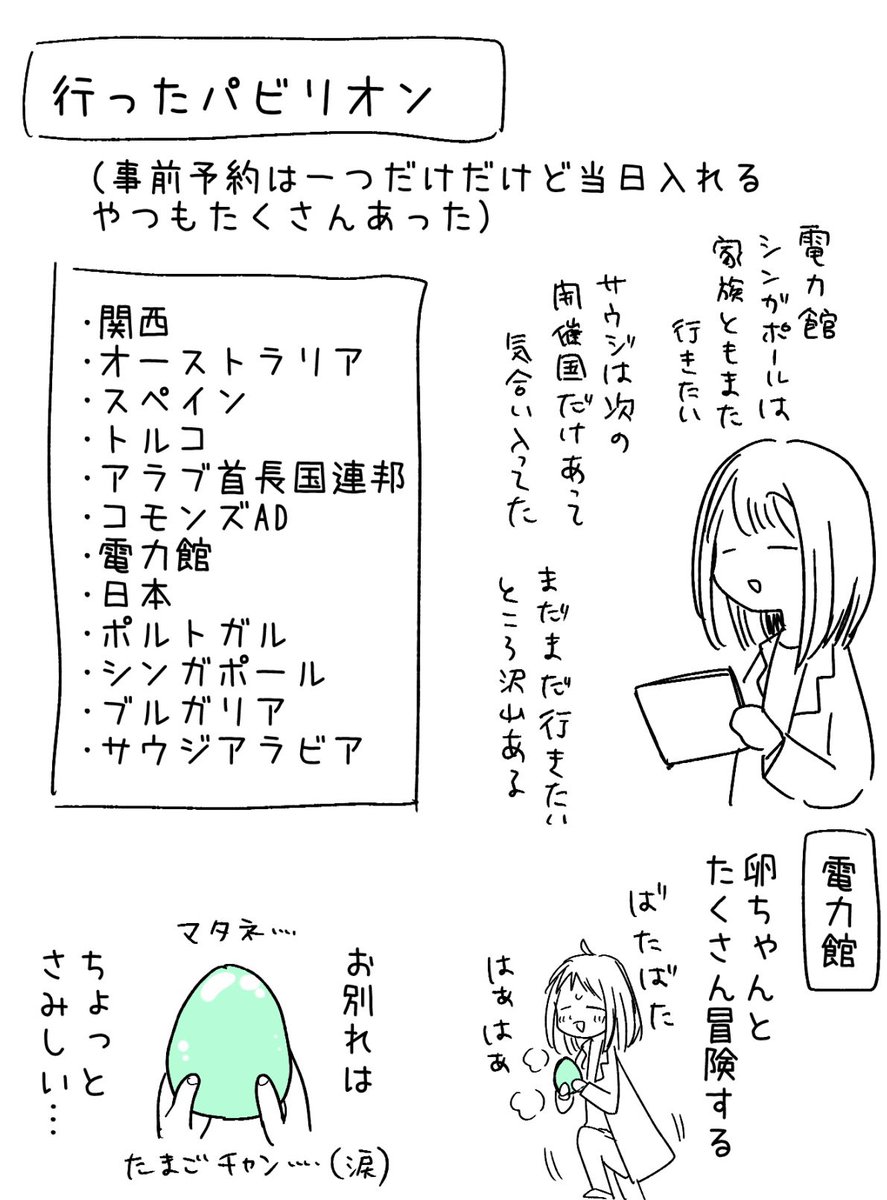 行ったパビリオン
(事前予約は一つだけだけど当日入れる
やつもたくさんあった)
・関西
・オーストラリア
・スペイン
・トルコ
・アラブ首長国連邦
・コモンズAD
・電力館
・日本
・ポルトガル
・シンガポール
・ブルガリア
・サウジアラビア
電力館
シンガポールは
家族ともまた
行きたい
サウジは次の
開催国だけあって
気合い入ってた
まだまだ行きたい
ところ沢山ある
電力館
卵ちゃんと
たくさん冒険する
ばたばた
はぁはぁ
お別れは
ちょっと
さみしい…
マタネ…
たまごチャン……(涙)